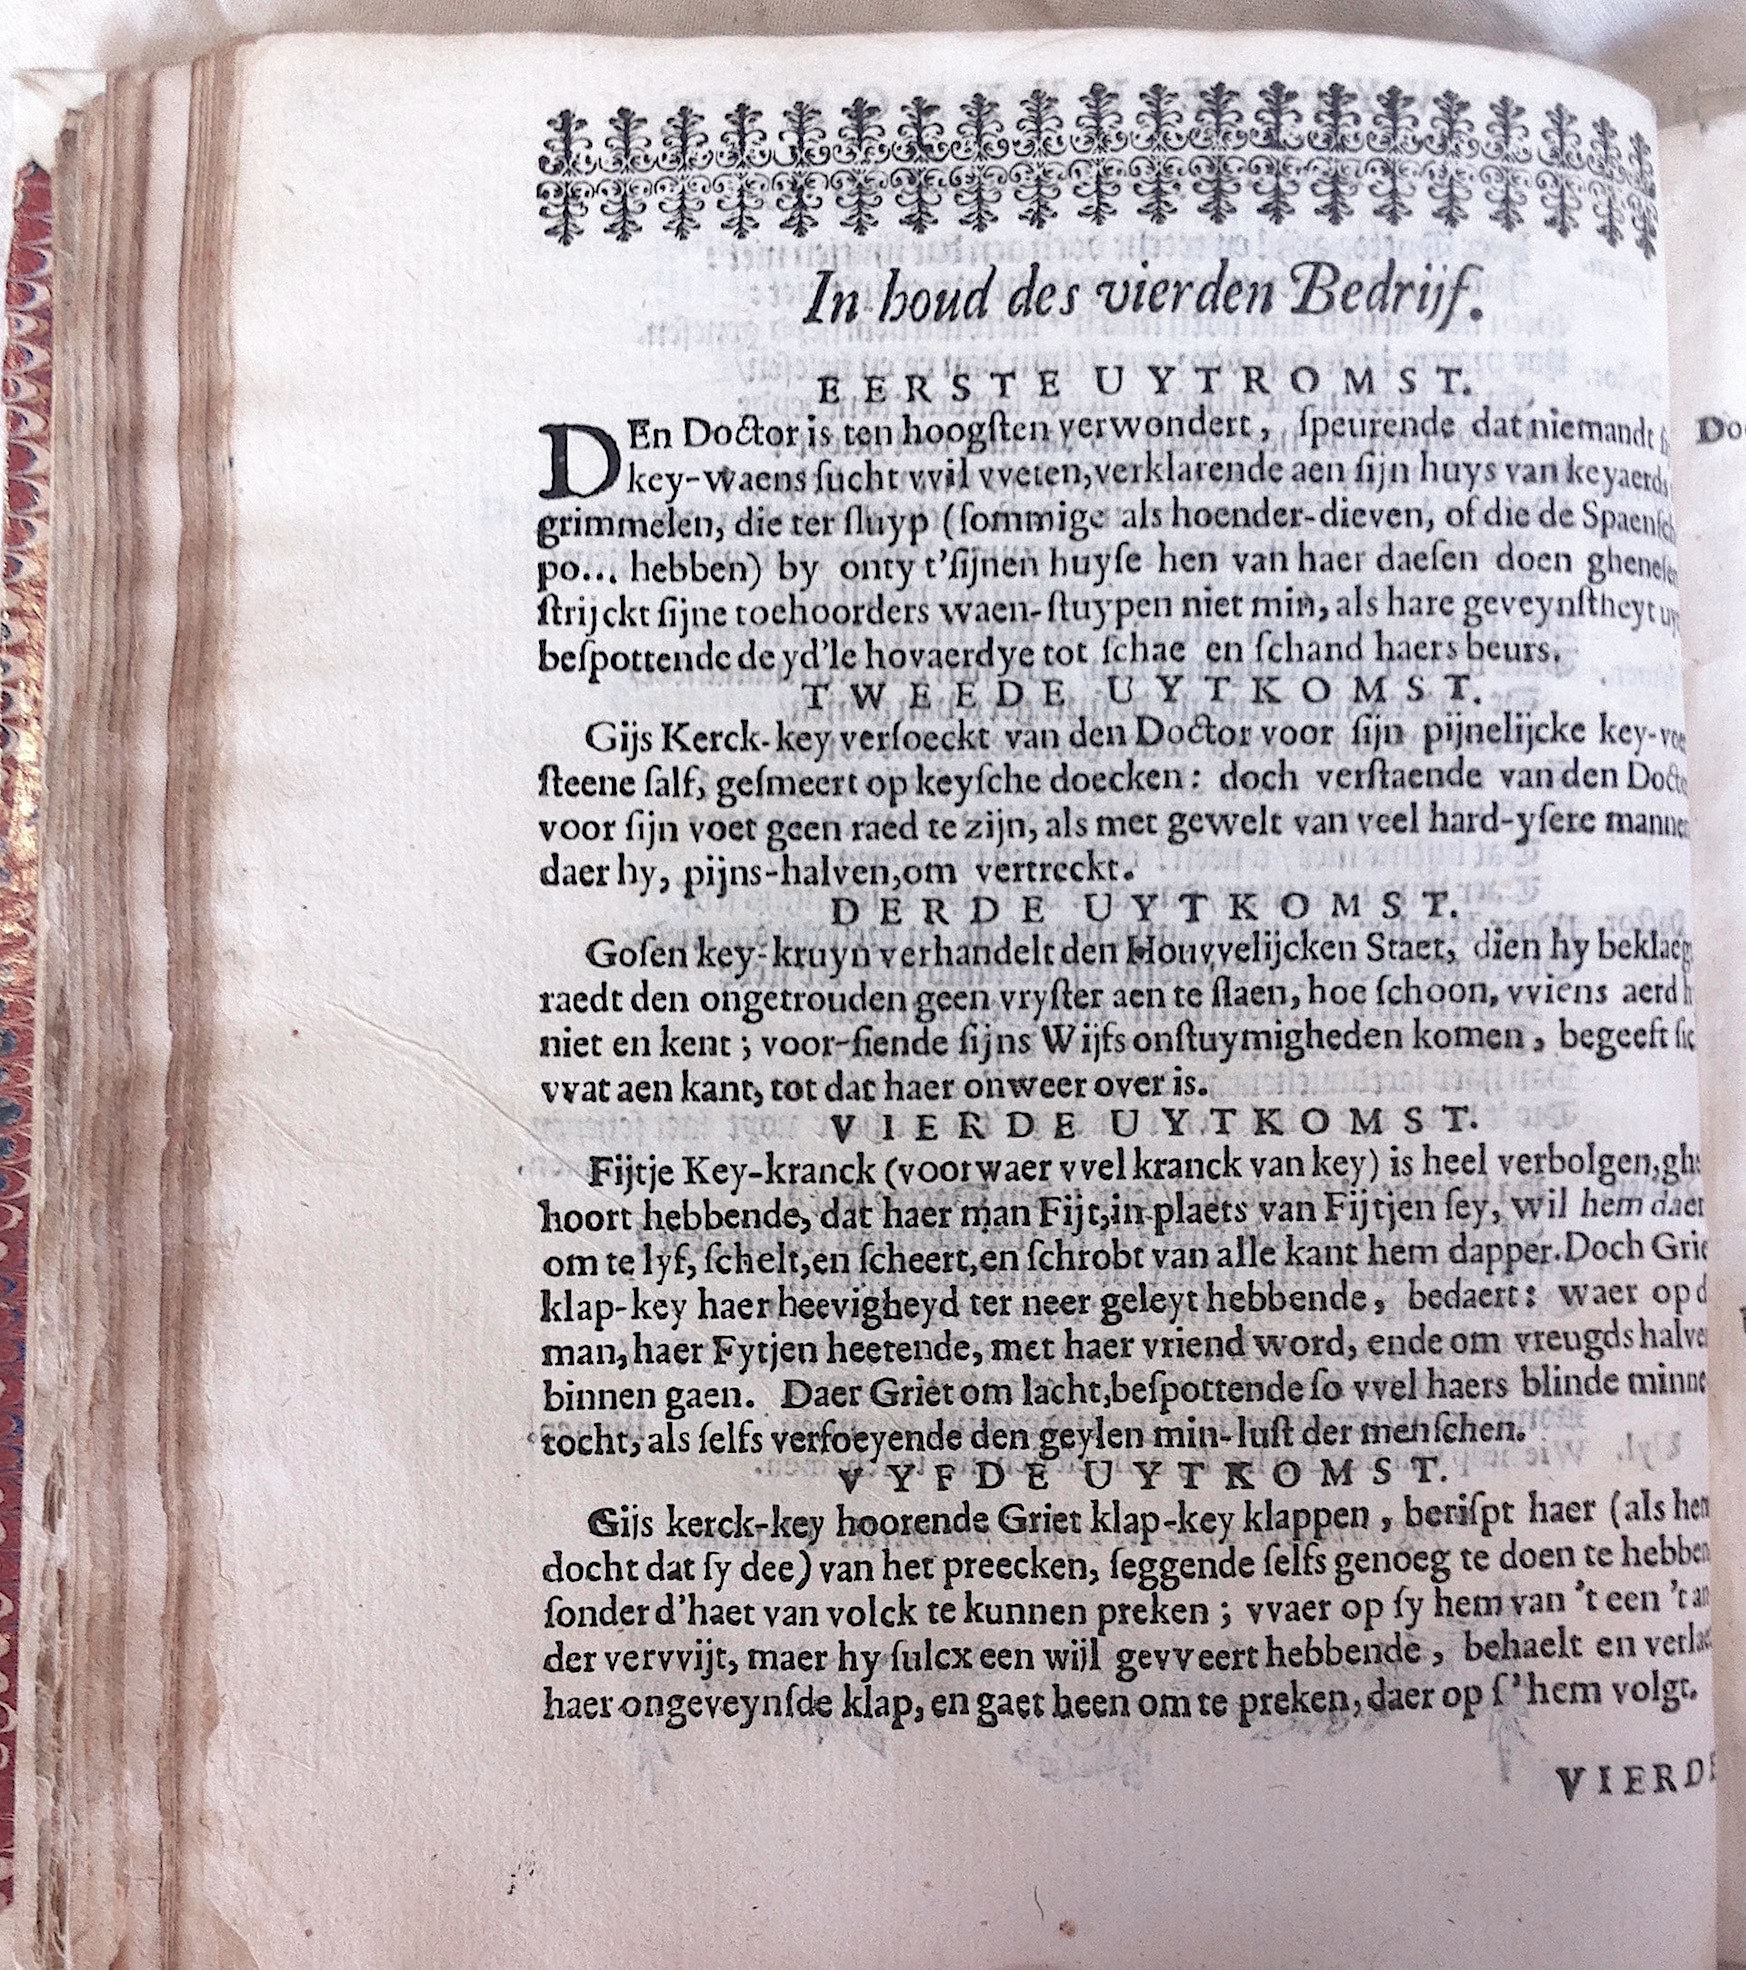 In houd des vierden Bedrijf.
EERSTE UYTROMST.
DEn Doctor is ten hoogſten verwondert, ſpeurende dat niemandt
key-waens ſucht vvil vveten, verklarende aen ſijn huys van keyaerds
grimmelen, die ter ſluyp (ſommige als hoender-dieven, of die de Spaenſch
po... hebben) by onty t'ſijnen huyſe hen van haer daeſen doen gheneſen
ſtrijckt ſijne toehoorders waen-ſtuypen niet min, als hare geveynſtheyt uyt
beſpottende de yd'le hovaerdye tot ſchae en ſchand haers beurs.
TWEEDE UYTKOMST.
Gijs Kerck-key verſoeckt van den Doctor voor ſijn pijnelijcke key-voe
ſteene ſalf, geſmeert op keyſche doecken: doch verſtaende van den Docto
voor ſijn voet geen raed te zijn, als met gewelt van veel hard-yſere mannen
daer hy, pijns-halven, om vertreckt.
DERDE UYTKOMST.
Goſen key-kruyn verhandelt den Houvvelijcken Staet, dien hy beklaeg
raedt den ongetrouden geen vryſter aen te ſlaen, hoe ſchoon, vviens aerd h
niet en kent; voor-ſiende ſijns Wijfs onſtuymigheden komen, begeeft ſic
vvat aen kant, tot dat haer onweer over is.
VIERDE UYTKOMST.
Fijtje Key-kranck (voorwaer vvel kranck van key) is heel verbolgen, ghe
hoort hebbende, dat haer man Fijt, in plaets van Fijtjen ſey, wil hem daer
om te lyf, ſchelt, en ſcheert, en ſchrobt van alle kant hem dapper. Doch Grie
klap-key haer heevigheyd ter neer geleyt hebbende, bedaert: waer op d
man, haer Fytjen heetende, met haer vriend word, ende om vreugds halve
binnen gaen. Daer Griet om lacht, beſpottende ſo vvel haers blinde minne
tocht, als ſelfs verfoeyende den geylen min-luſt der menſchen.
VYFDE UYTKOMST.
Gijs kerck-key hoorende Griet klap-key klappen, beriſpt haer (als hem
docht dat ſy dee) van het preecken, ſeggende ſelfs genoeg te doen te hebben
ſonder d'haet van volck te kunnen preken; vvaer op ſy hem van 't een 't an
der vervvijt, maer hy ſulcx een wijl gevveert hebbende, behaelt en verlae
haer ongeveynſde klap, en gaet heen om te preken, daer op ſ'hem volgt.
VIERDE
Do